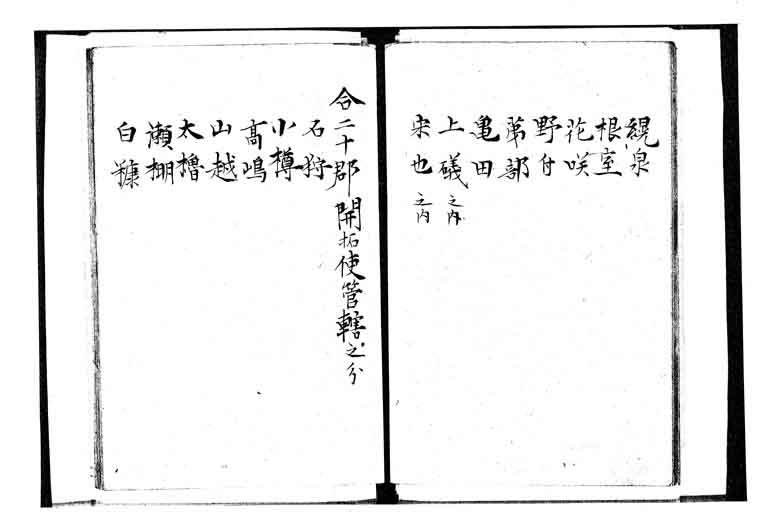 幌泉
根室
花咲
野付
茅部
亀田
上磯之内
宗也之内
合二十郡開拓使管轄之分
石狩
小樽
高嶋
山越
太櫓
瀬棚
白糠